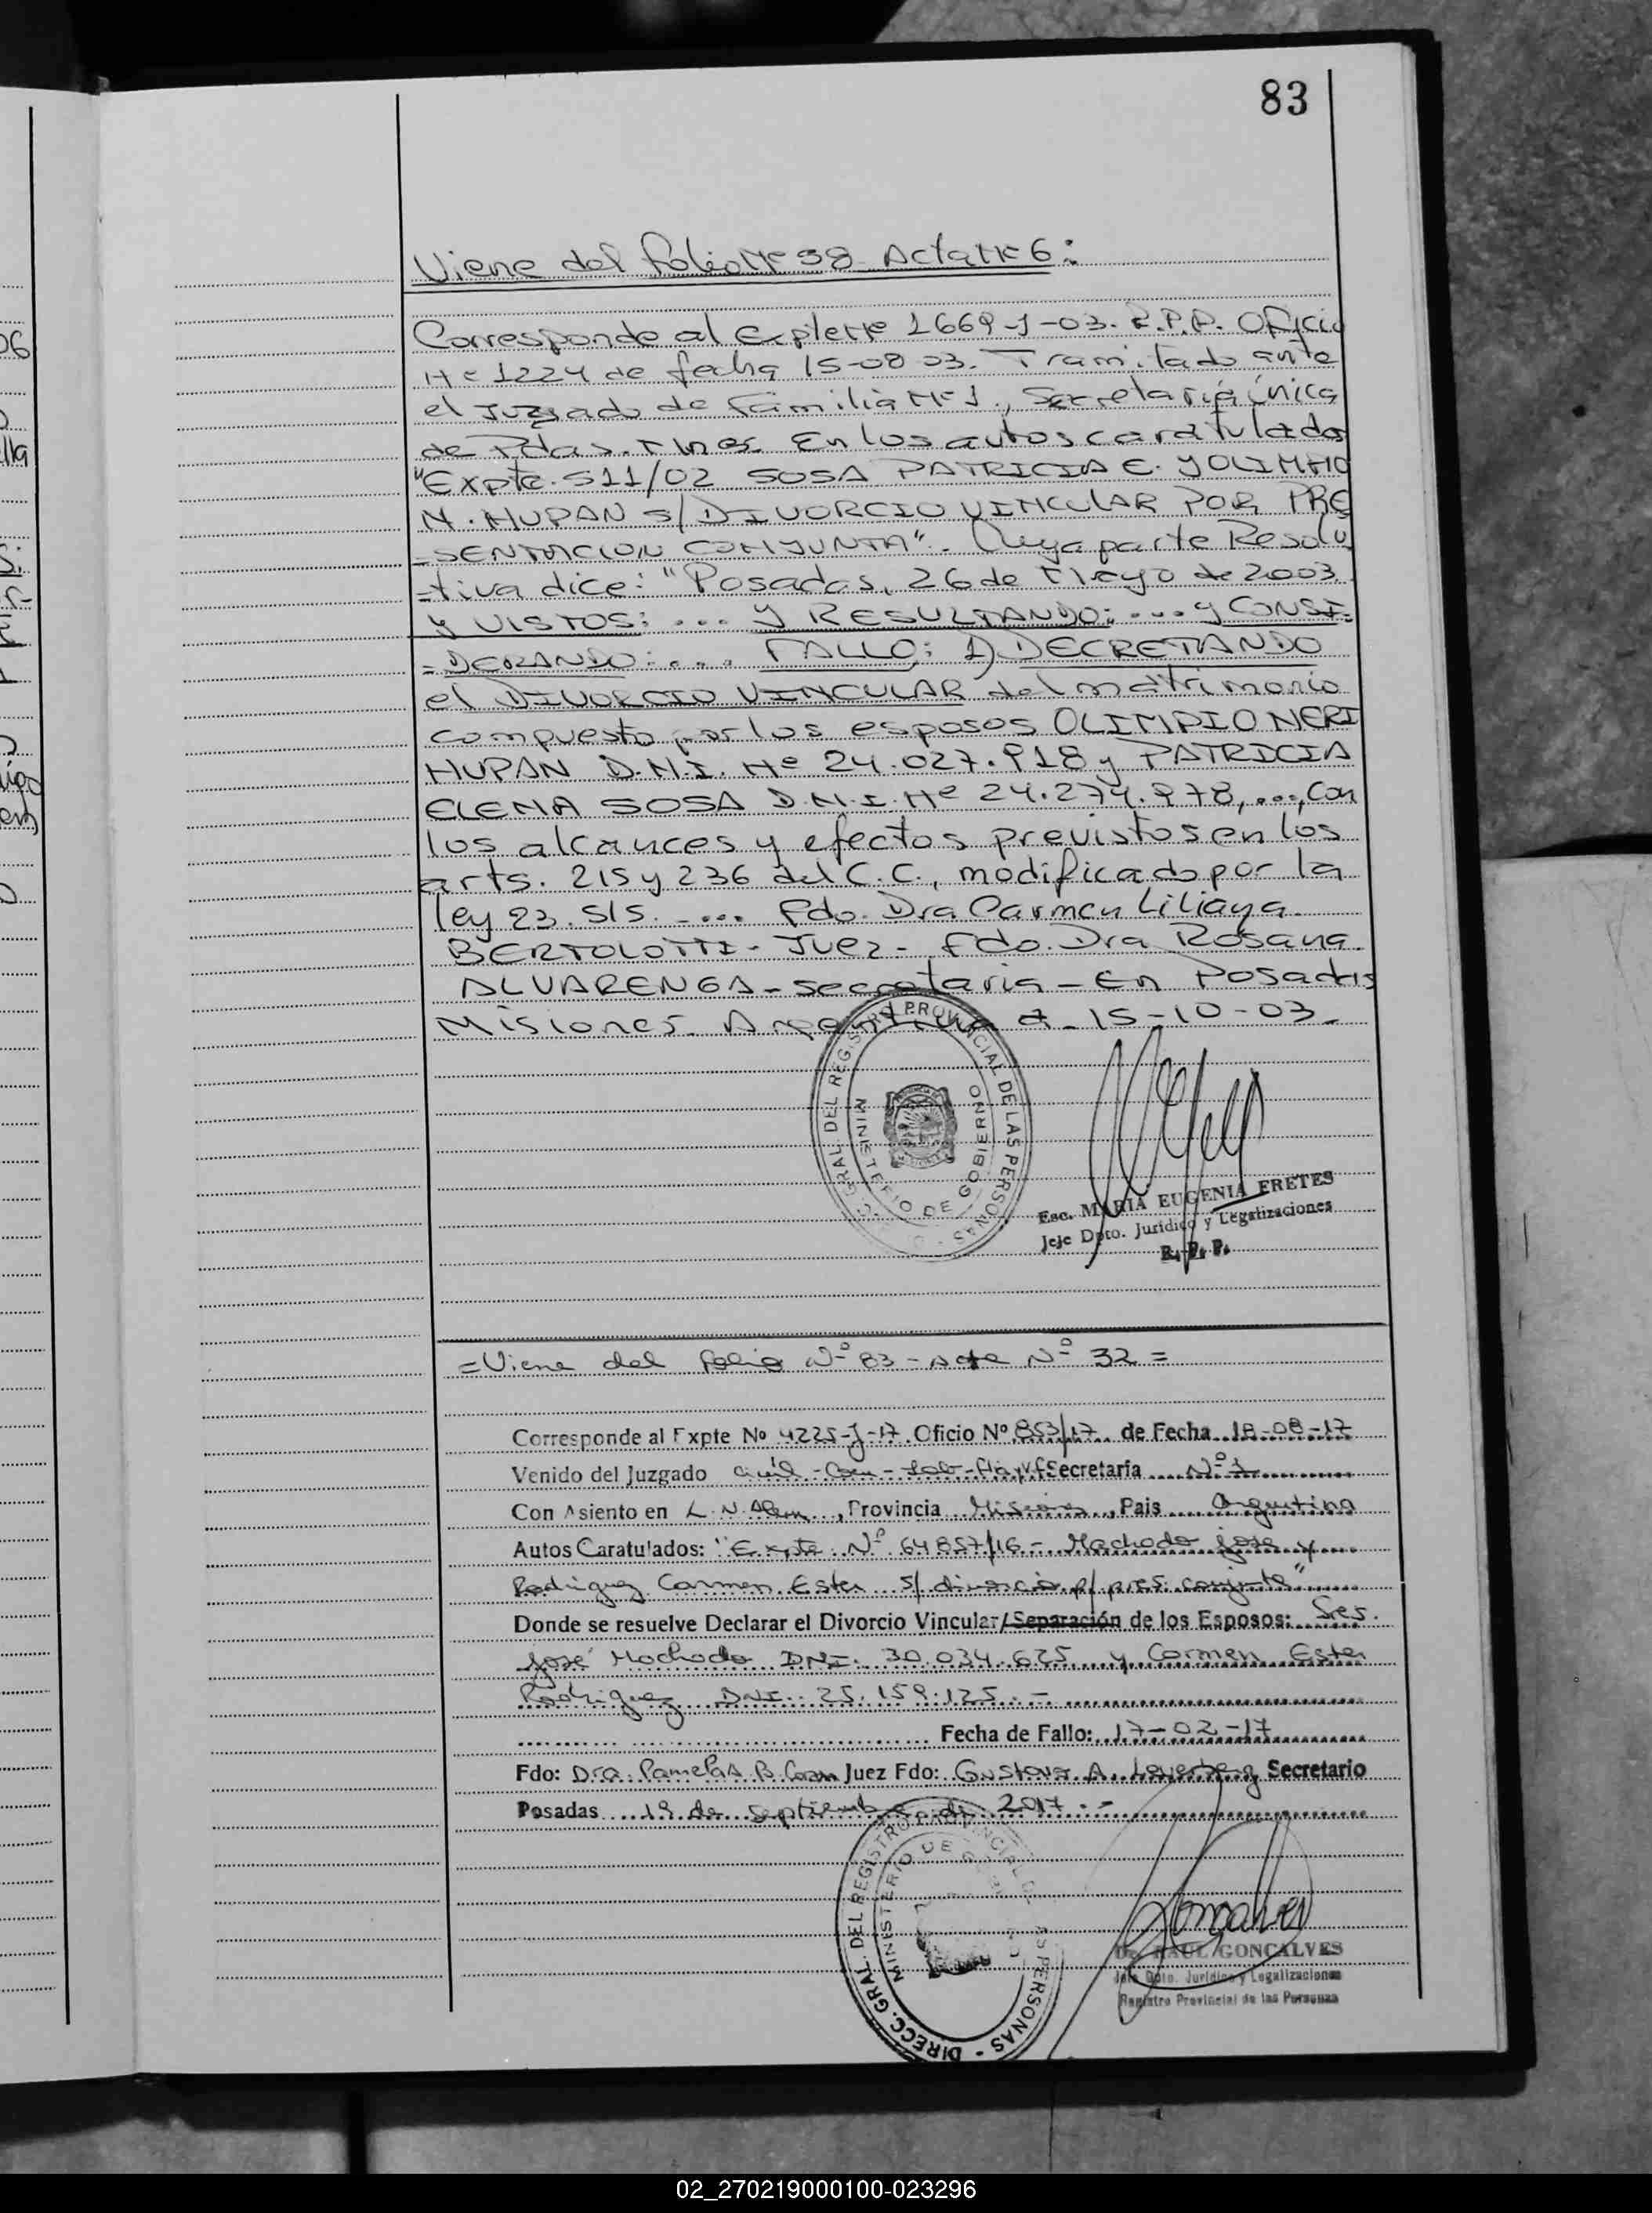 83
Viene del folio Nº 38 Acta Nº 6:
Corresponde al Expte Nº 1669-J-03. R.P.P. Oficio
Nº 1224 de fecha 15-08-03. Tramitado ante
el Juzgado de Familia Nº 1., Secretaría Única
de Pdas. Mnes. En los autos caratulados
"Expte. 511/02 SOSA PATRICIA E. y OLIMPIO
N. HUPAN s/ DIVORCIO VINCULAR POR PRE
-SENTACION CONJUNTA". Cuya parte Resolu
-tiva dice: "Posadas, 26 de Mayo de 2003.
y VISTOS: ... y RESULTANDO: ... y CONSI-
=DERANDO: .... FALLO: 1) DECRETANDO
el DIVORCIO VINCULAR del matrimonio
compuesto por los esposos OLIMPIO NERI
HUPAN D.N.I. Nº 24.027.918 y PATRICIA
ELENA SOSA D.N.I. Nº 24.274.978, ..., con
los alcances y efectos previstos en los
arts. 215 y 236 del C.C., modificado por la
ley 23.515. - ... Fdo. Dra Carmen Liliana
BERTOLOTTI - Juez - Fdo. Dra Rosana
ALVARENGA - secretaria - En Posadas
Misiones - Argentina a 15-10-03.
DIRECC. GRAL. DEL REGISTRO PROVINCIAL DE LAS PERSONAS
MINISTERIO DE GOBIERNO
Esc. MARIA EUGENIA FRETES
Jefe Dpto. Jurídico y Legalizaciones
R. P. P.
=Viene del folio Nº 83 - Acta Nº 32 =
Corresponde al Expte Nº 4225-J-17 Oficio Nº 853/17 de Fecha 18-08-17
Venido del Juzgado Civil - Com - Lab - Flia y VF Secretaría Nº 1
Con Asiento en L.N. Alem, Provincia Misiones, Pais Argentina
Autos Caratulados: "Expte. Nº 64857/16 - Machado José y
Rodriguez Carmen Ester s/ divorcio p/ pres. conjunta"
Donde se resuelve Declarar el Divorcio Vincular/Separación de los Esposos: Sres.
José Machado DNI. 30.034.625 y Carmen Ester
Rodriguez DNI. 25.159.125. -
Fecha de Fallo: 17-02-17
Fdo: Dra. Pamela B. Juez Fdo: Gustavo A. Secretario
Posadas 19 de Septiembre de 2017 -
DIRECC. GRAL. DEL REGISTRO PROVINCIAL DE LAS PERSONAS
MINISTERIO DE
Dr. RAUL GONCALVES
Jefe Dpto. Jurídico y Legalizaciones
Registro Provincial de las Personas
02_270219000100-023296